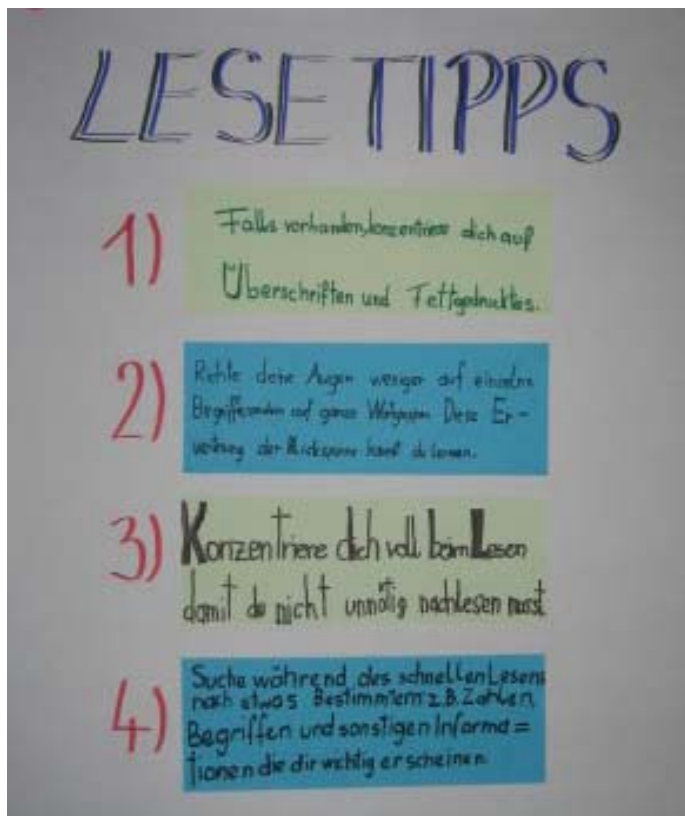 LESETIPPS
1) Falls vorhanden, konzentriere dich auf
Überschriften und Fettgedrucktes.
2) Richte deine Augen weniger auf einzelne
Begriffe sondern auf ganze Wortgruppen. Diese Er-
weiterung der Blickspanne kannst du lernen.
3) Konzentriere dich voll beim Lesen
damit du nicht unnötig nachlesen musst
4) Suche während des schnellen Lesens
nach etwas Bestimmtem z.B. Zahlen,
Begriffen und sonstigen Informa=
tionen die dir wichtig erscheinen.